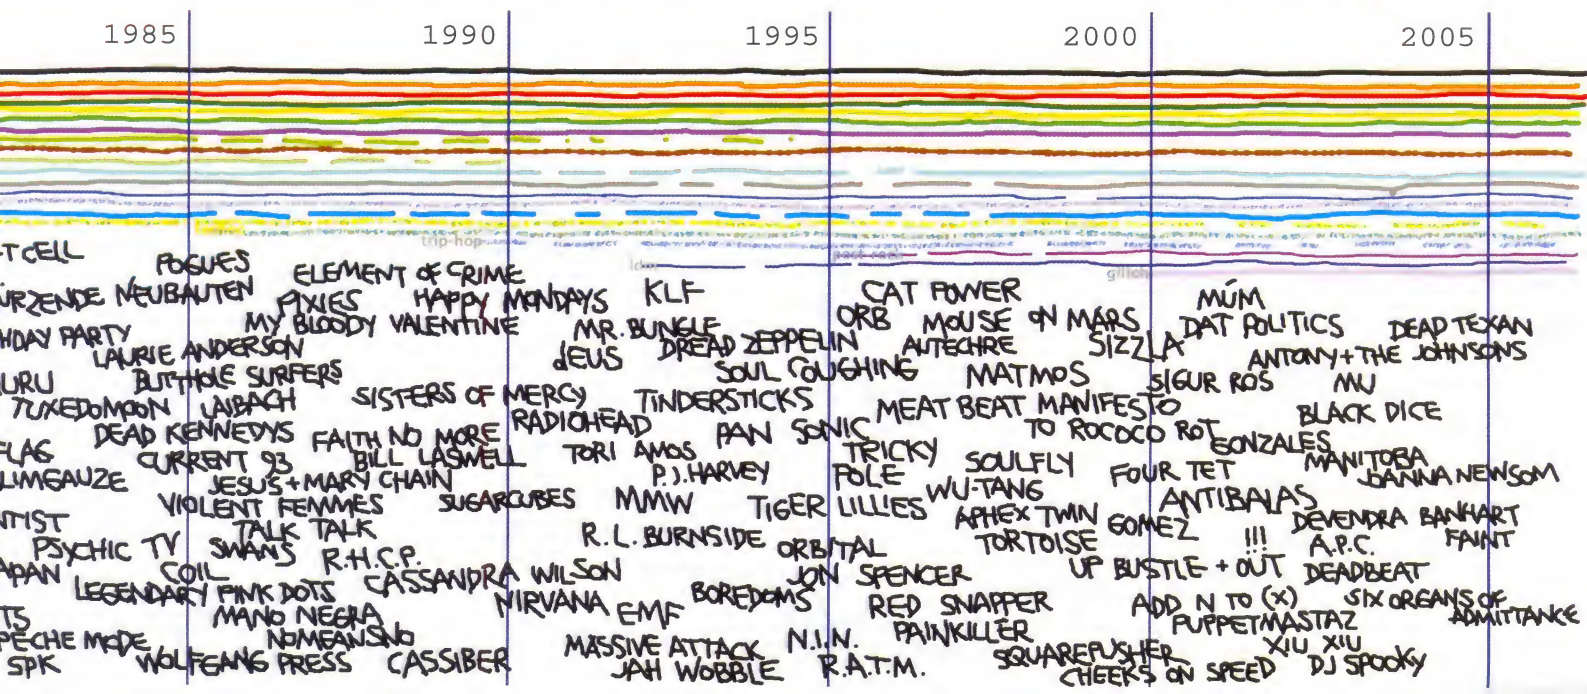 1985 1990 1995 2000 2005
trip-hop
idm
post-rock
glitch
T CELL
POGUES
ELEMENT OF CRIME
ÜRZENDE NEUBAUTEN
PIXIES
HAPPY MONDAYS
KLF
CAT POWER
MÚM
MY BLOODY VALENTINE
MR. BUNGLE
ORB
MOUSE ON MARS
DAT POLITICS
DEAD TEXAN
HDAY PARTY
LAURIE ANDERSON
dEUS
DREAD ZEPPELIN
AUTECHRE
SIZZLA
ANTONY + THE JOHNSONS
URU
BUTTHOLE SURFERS
SOUL COUGHING
MATMOS
SIGUR ROS
MU
TUXEDOMOON
LAIBACH
SISTERS OF MERCY
TINDERSTICKS
MEAT BEAT MANIFESTO
BLACK DICE
DEAD KENNEDYS
FAITH NO MORE
RADIOHEAD
PAN SONIC
TO ROCOCO ROT
GONZALES
FLAG
CURRENT 93
BILL LASWELL
TORI AMOS
TRICKY
SOULFLY
MANITOBA
LIMGAUZE
JESUS + MARY CHAIN
P.J. HARVEY
POLE
FOUR TET
JOANNA NEWSOM
VIOLENT FEMMES
SUGARCUBES
MMW
TIGER LILLIES
WU-TANG
ANTIBALAS
NTIST
TALK TALK
APHEX TWIN
GOMEZ
DEVENDRA BANHART
PSYCHIC TV
SWANS
R.H.C.P.
R.L. BURNSIDE
ORBITAL
TORTOISE
!!!
A.P.C.
FAINT
APAN
COIL
CASSANDRA WILSON
JON SPENCER
UP BUSTLE + OUT
DEADBEAT
LEGENDARY PINK DOTS
NIRVANA
EMF
BOREDOMS
RED SNAPPER
ADD N TO (X)
SIX ORGANS OF
ADMITTANCE
TS
MANO NEGRA
PAINKILLER
PUPPETMASTAZ
PECHE MODE
NOMEANSNO
MASSIVE ATTACK
N.I.N.
SQUAREPUSHER
XIU XIU
SPK
WOLFGANG PRESS
CASSIBER
JAH WOBBLE
R.A.T.M.
CHEEKS ON SPEED
DJ SPOOKY